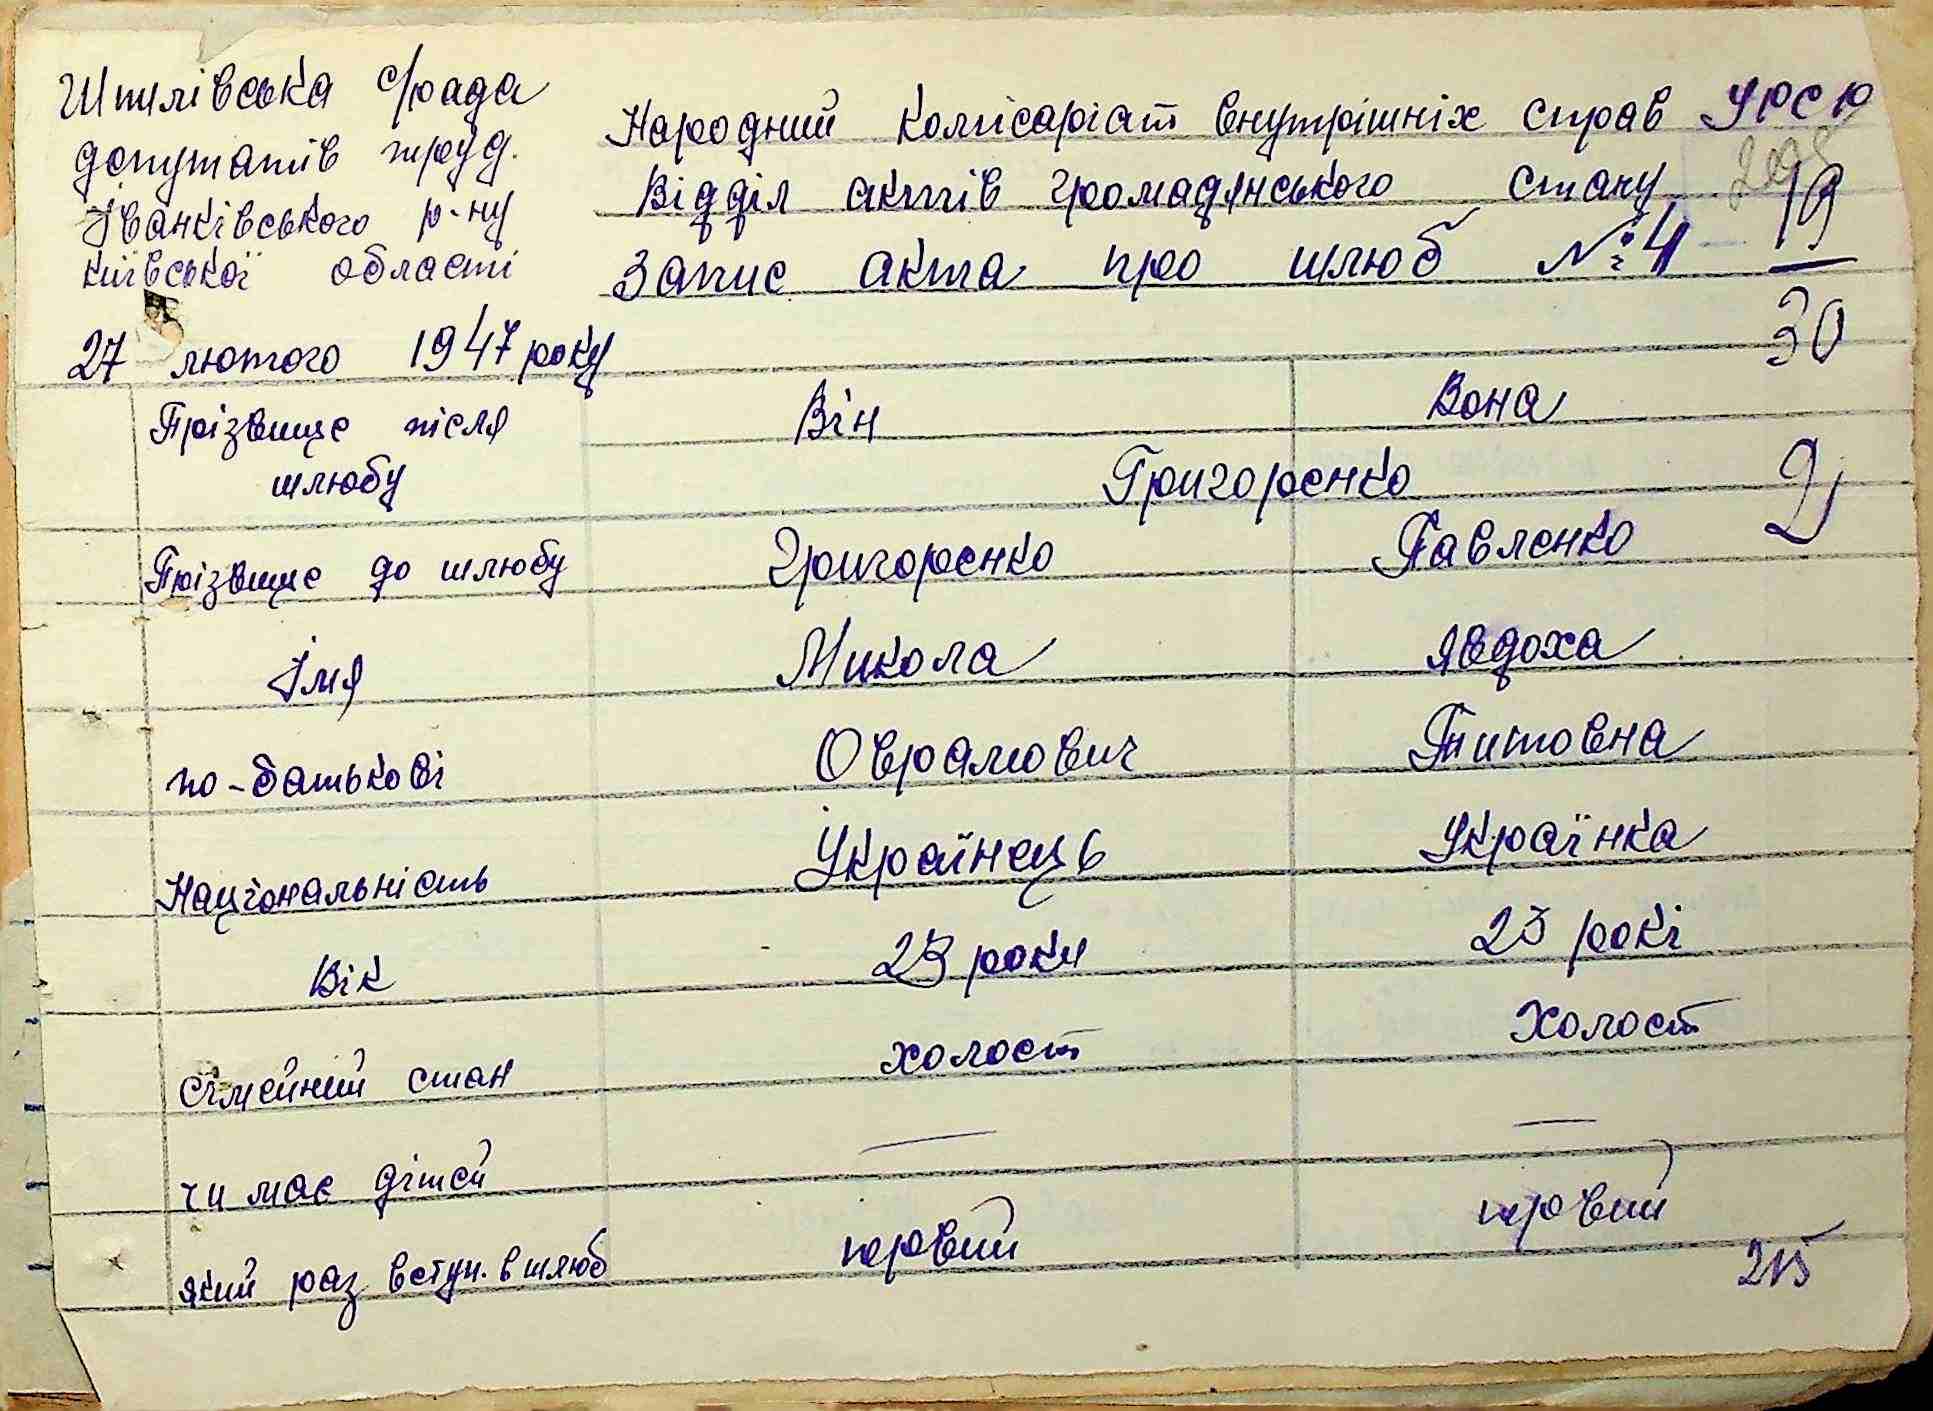 Шпилівська с/рада
депутатів труд.
Іванківського р-ну
Київської області
27 лютого 1947 року
Народний Комісаріат внутрішніх справ УРСР
Відділ актів громадянського стану 19
Запис акта про шлюб № 4
30
Прізвище після шлюбу
Він Вона
Григоренко
Прізвище до шлюбу Григоренко Павленко
Імя Микола Явдоха
по-батькові Оврамович Титовна
Національність Українець Українка
Вік 23 роки 23 рокі
Сімейний стан холост холост
чи має дітей — —
який раз вступ. в шлюб первий первий
215